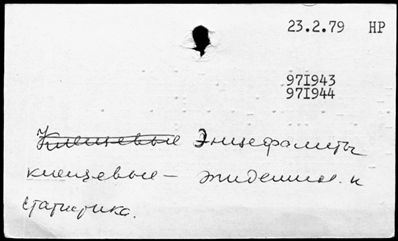 23.2.79 НР
97I943
97I944
Клещевые Энцефалиты
клещевые — эпидемиол. и
статистика.